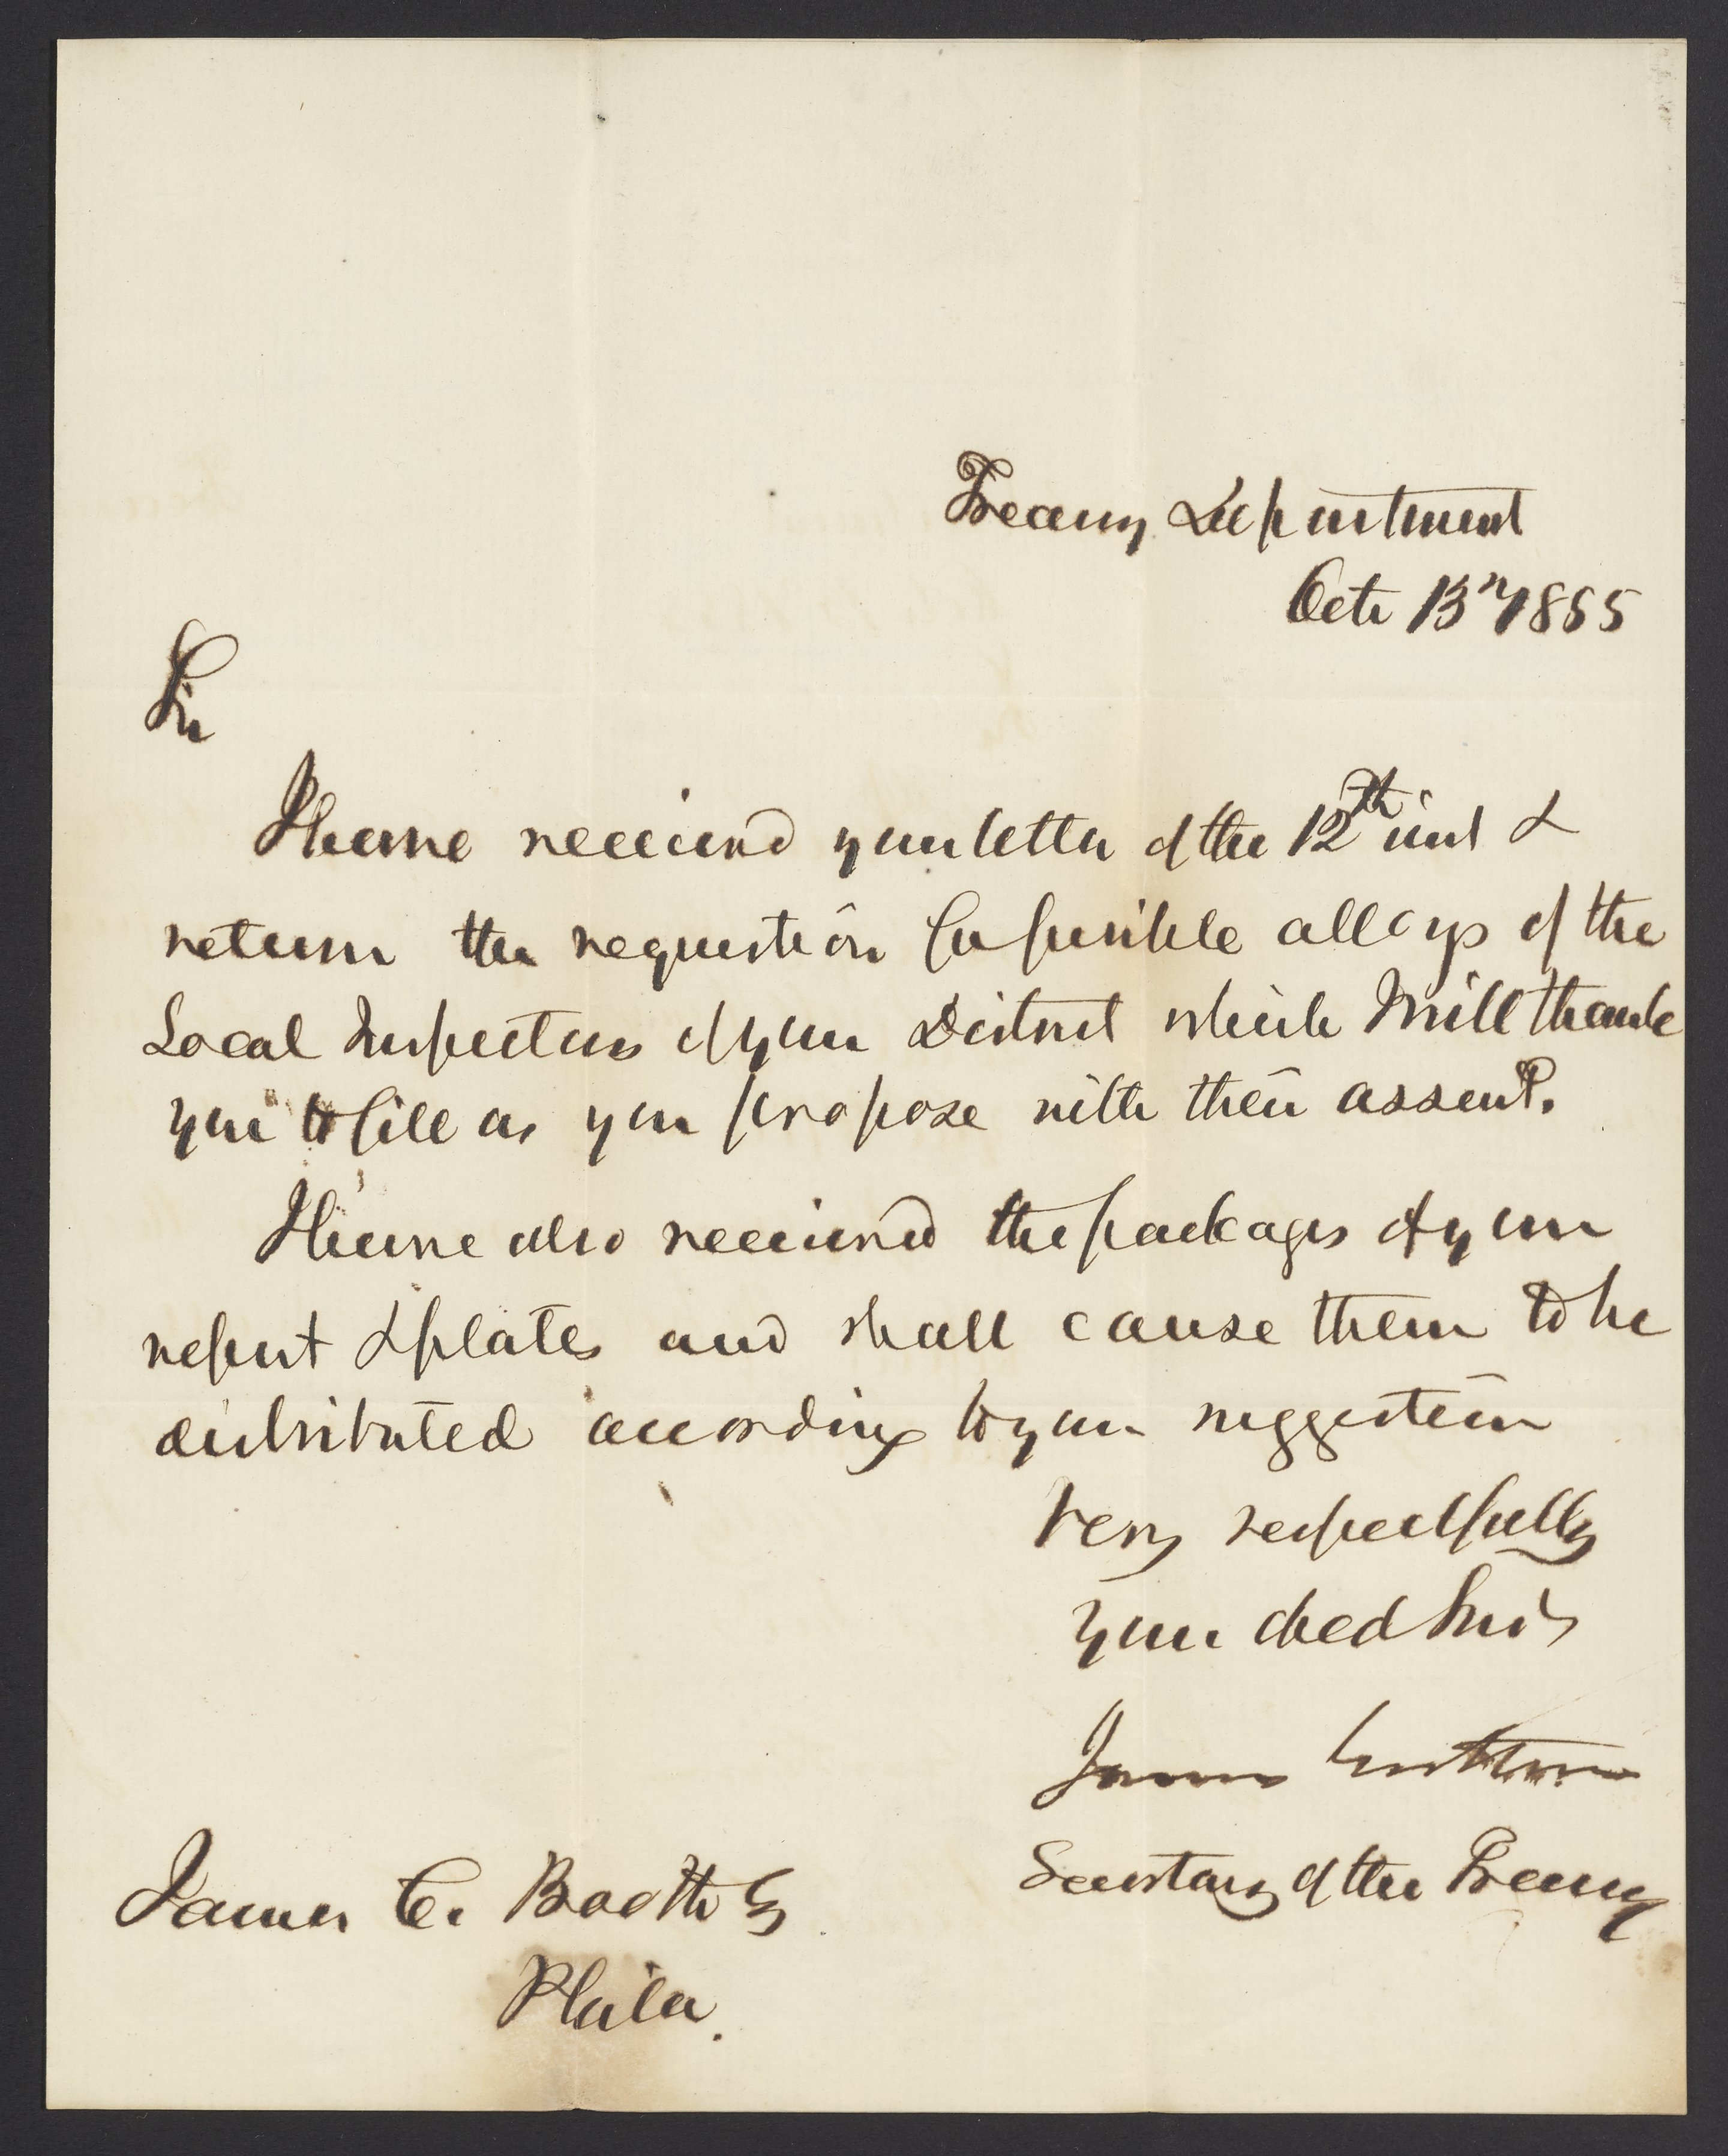 Treasury Department
Octr 13th 1855
Sir
I have received your letter of the 12th inst &
return the requestion for fusible alloys of the
Local Inspectors of your District which I will thank
you to fill as you propose with their assent.
I have also received the packages of your
report & plates and shall cause them to be
distributed according to your suggestion
Very respectfully
Your obed Servt
James Guthrie
Secretary of the Treasury
James C. Booth Esq
Phila.